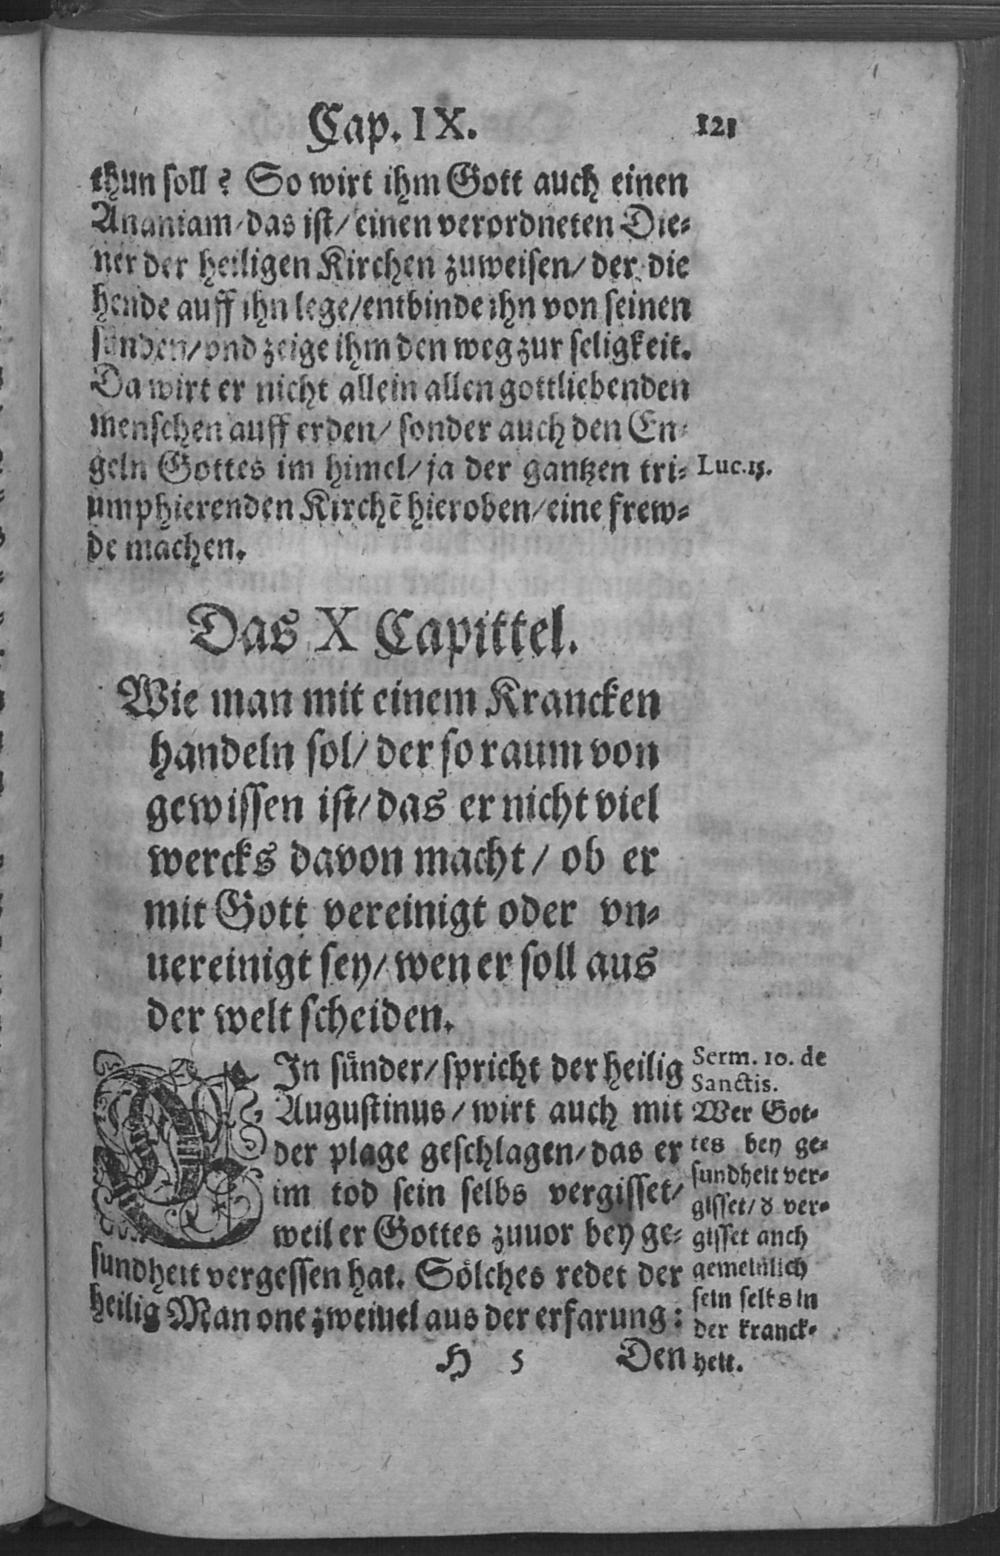 Cap. IX. 121
thun soll? So wirt ihm Gott auch einen
Ananiam/das ist/einen verordneten Die-
ner der heiligen Kirchen zuweisen/der die
hende auff ihn lege/entbinde ihn von seinen
sünden/vnd zeige ihm den weg zur seligkeit.
Da wirt er nicht allein allen gottliebenden
menschen auff erden/sonder auch den En-
geln Gottes im himel/ja der gantzen tri-
Luc.15.
umphierenden Kirchẽ hieroben/eine frew-
de machen.
Das X Capittel.
Wie man mit einem Krancken
handeln sol/der so raum von
gewissen ist/das er nicht viel
wercks davon macht/ob er
mit Gott vereinigt oder vn-
uereinigt sey/wen er soll aus
der welt scheiden.
EIn sünder/spricht der heilig
Augustinus/wirt auch mit
der plage geschlagen/das er
im tod sein selbs vergisset/
weil er Gottes zuuor bey ge-
sundheit vergessen hat. Sölches redet der
heilig Man one zweiuel aus der erfarung:
Serm. 10. de
Sanctis.
Wer Got-
tes bey ge-
sundheit ver-
gisset/d ver-
gisset auch
gemeinlich
sein selbs in
der kranck-
heit.
H 5 Den